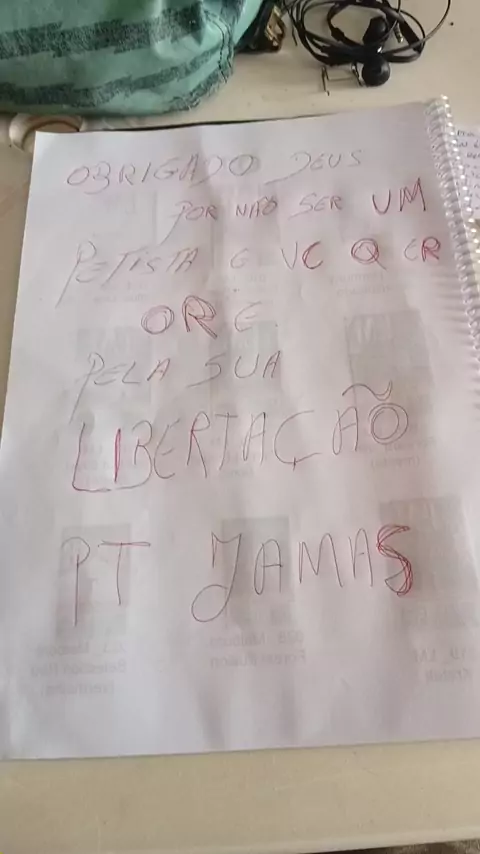 OBRIGADO DEUS
POR NÃO SER UM
PETISTA E VC Q ER
ORE
PELA SUA
LIBERTAÇÃO
PT JAMAS